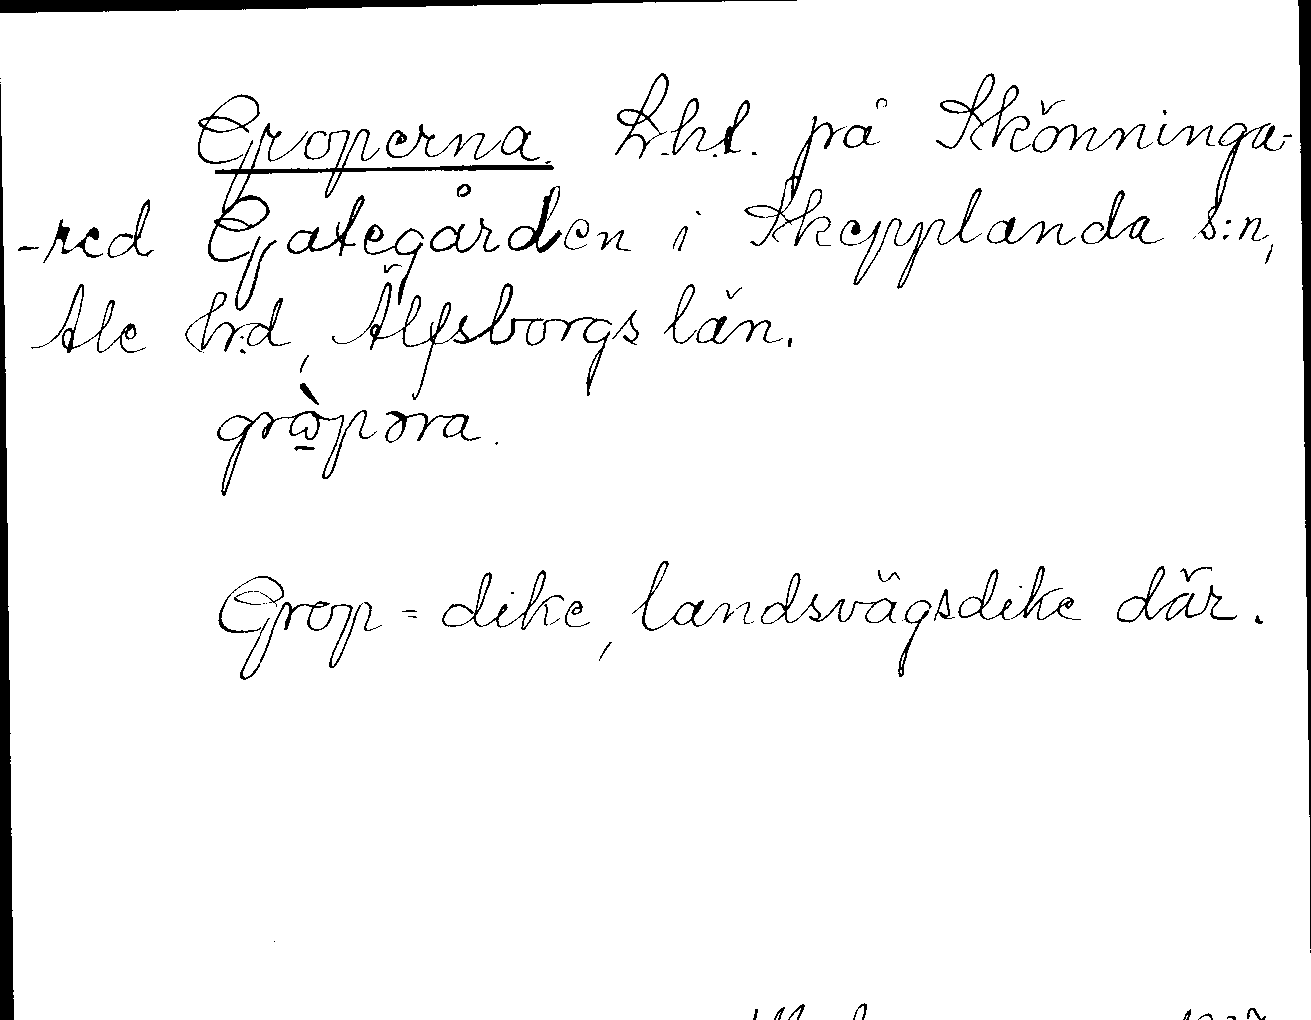 Groperna. L.h.t. på Skönninga-
-red Gategården i Skepplanda s:n,
Ale h:d, Älfsborgs län.
grὼ̲pəra.
Grop = dike, landsvägsdike där.